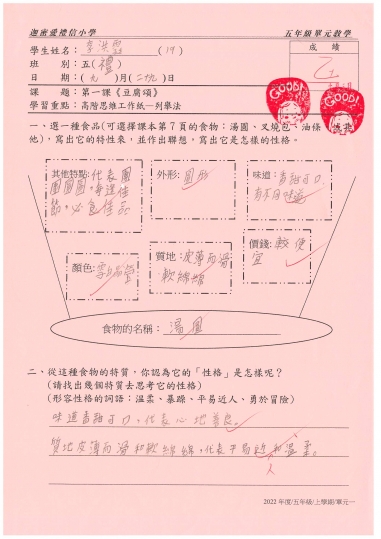 迦密愛禮信小學 五年級單元教學
學生姓名：李洪雲 (19)
成績
乙
班 別：五(禮)
日 期：(九)月(二十九)日
GOOD!
GOOD!
課 題：第一課《豆腐頌》
學習重點：高階思維工作紙—列舉法
一、選一種食品(可選擇課本第7頁的食物：湯圓、叉燒包、油條、
他)，寫出它的特性來，並作出聯想，寫出它是怎樣的性格。
其他特點:代表團
團圓圓，每逢佳
節，必食佳品
外形:圓形
味道:香甜可口
有不同味道
顏色:雪白晶瑩
質地:皮薄而滑
軟綿綿
價錢:較便
宜
食物的名稱：湯圓
二、從這種食物的特質，你認為它的「性格」是怎樣呢？
(請找出幾個特質去思考它的性格)
(形容性格的詞語：溫柔、暴躁、平易近人、勇於冒險)
味道香甜可口，代表心地善良。
質地皮薄而滑和軟綿綿，代表平易近和溫柔。
人
2022 年度/五年級/上學期/單元一